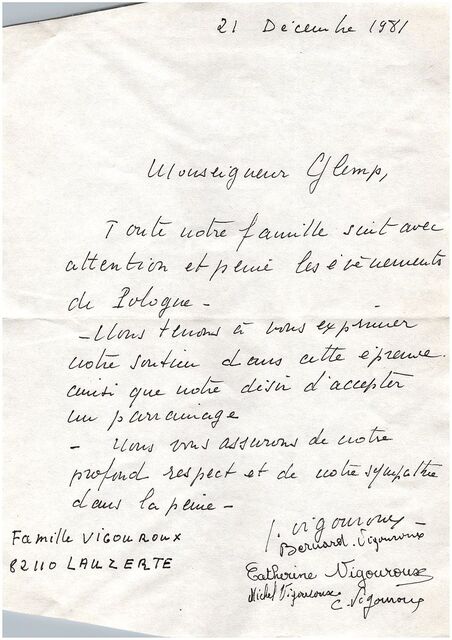 21 Décembre 1981
Monseigneur Glemp,
Toute notre famille suit avec
attention et peine les évènements
de Pologne -
- Nous tenons à vous exprimer
notre soutien dans cette épreuve.
ainsi que notre désir d'accepter
un parrainage
- Nous vous assurons de notre
profond respect et de notre sympathie
dans la peine -
Famille VIGOUROUX
82110 LAUZERTE
J. Vigouroux
Bernard. Vigouroux
Catherine Vigouroux
Michel Vigouroux
C. Vigouroux